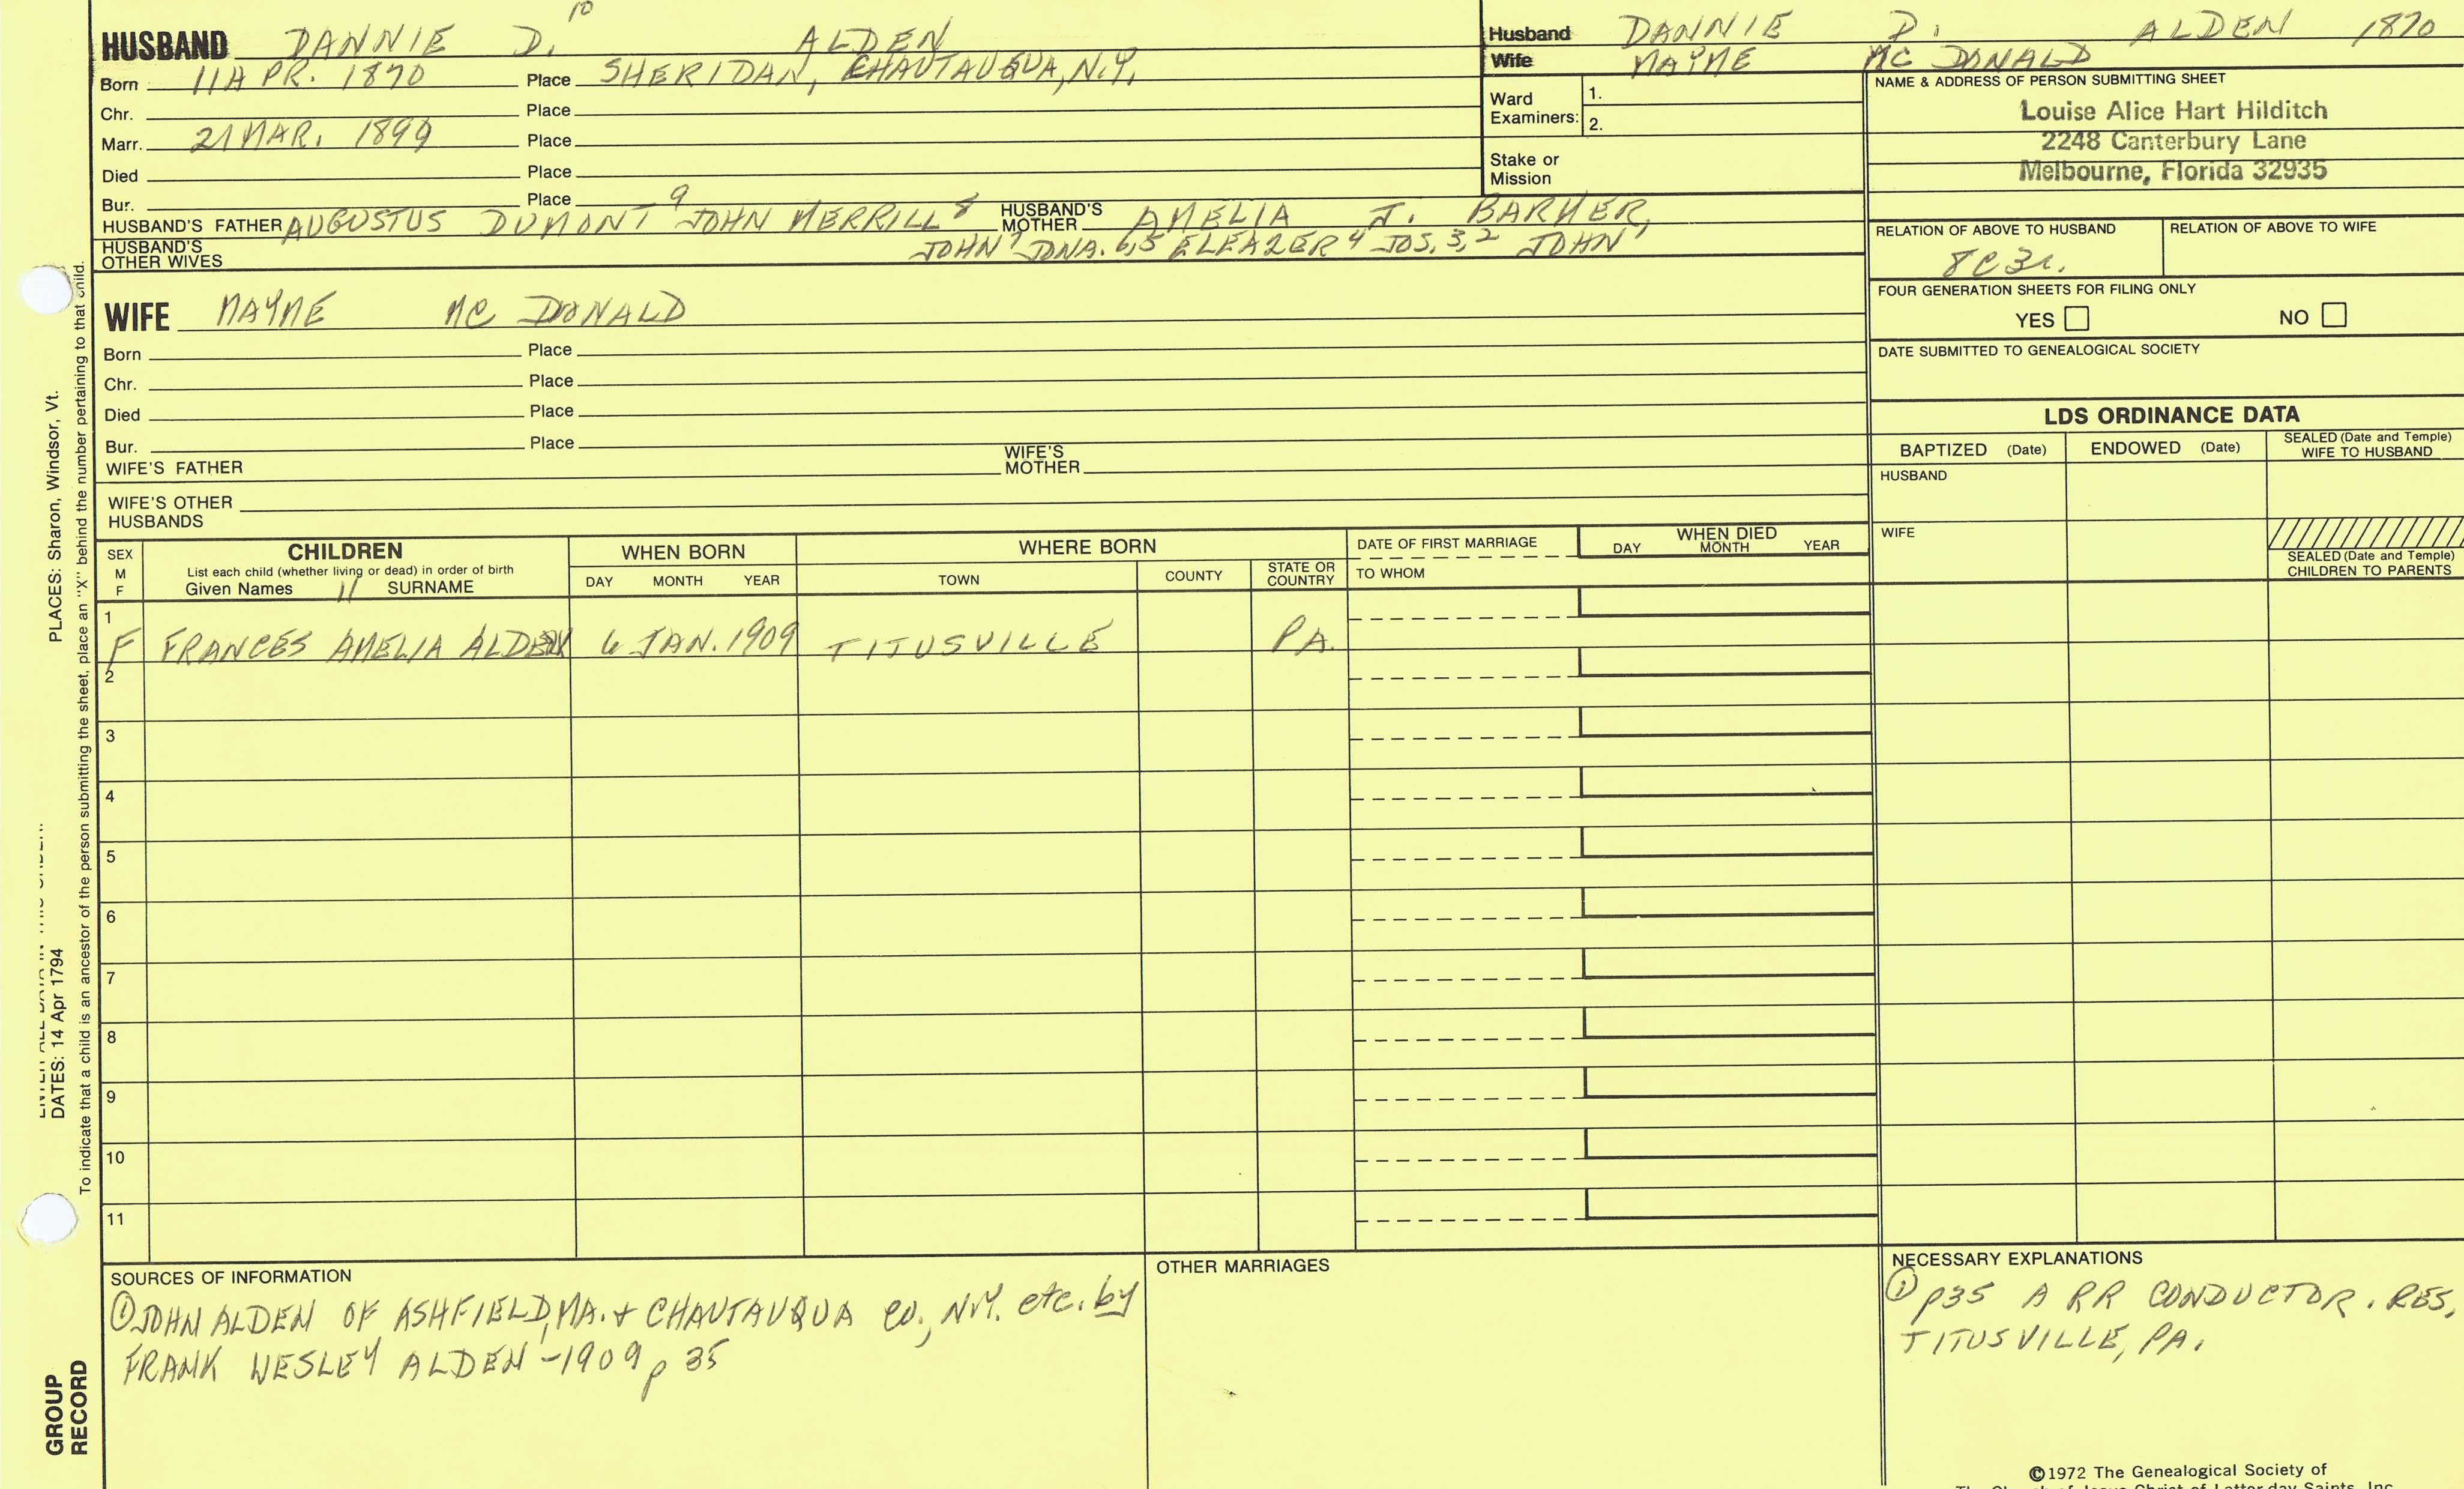 10
HUSBAND DANNIE D. ALDEN
Born 11 APR. 1870 Place SHERIDAN, CHAUTAUQUA, N.Y.
Chr. Place
Marr. 21 MAR. 1899 Place
Died Place
Bur. Place
HUSBAND'S FATHER AUGUSTUS DUMONT 9 JOHN MERRILL 8 HUSBAND'S MOTHER AMELIA J. BARKER,
HUSBAND'S OTHER WIVES JOHN 7 JONA. 6,5 ELEAZER 4 JOS. 3,2 JOHN 1
Husband DANNIE D. ALDEN 1870
Wife MAYME MC DONALD
Ward Examiners: 1.
2.
Stake or Mission
NAME & ADDRESS OF PERSON SUBMITTING SHEET
Louise Alice Hart Hilditch
2248 Canterbury Lane
Melbourne, Florida 32935
RELATION OF ABOVE TO HUSBAND RELATION OF ABOVE TO WIFE
8C3r.
FOUR GENERATION SHEETS FOR FILING ONLY
YES NO
DATE SUBMITTED TO GENEALOGICAL SOCIETY
WIFE MAYME MC DONALD
Born Place
Chr. Place
Died Place
Bur. Place
WIFE'S FATHER WIFE'S MOTHER
WIFE'S OTHER HUSBANDS
LDS ORDINANCE DATA
BAPTIZED (Date) ENDOWED (Date) SEALED (Date and Temple) WIFE TO HUSBAND
HUSBAND
WIFE
SEALED (Date and Temple) CHILDREN TO PARENTS
SEX M F
CHILDREN
List each child (whether living or dead) in order of birth
Given Names 11 SURNAME
WHEN BORN
DAY MONTH YEAR
WHERE BORN
TOWN COUNTY STATE OR COUNTRY
DATE OF FIRST MARRIAGE
TO WHOM
WHEN DIED
DAY MONTH YEAR
1
F FRANCES AMELIA ALDEN 6 JAN. 1909 TITUSVILLE PA.
2
3
4
5
6
7
8
9
10
11
SOURCES OF INFORMATION
① JOHN ALDEN OF ASHFIELD, MA. + CHAUTAUQUA CO., N.Y. etc. by
FRANK WESLEY ALDEN - 1909 p 35
OTHER MARRIAGES
NECESSARY EXPLANATIONS
① p35 A RR CONDUCTOR. RES,
TITUSVILLE, PA.
©1972 The Genealogical Society of
The Church of Jesus Christ of Latter-day Saints, Inc.
PLACES: Sharon, Windsor, Vt.
DATES: 14 Apr 1794
To indicate that a child is an ancestor of the person submitting the sheet, place an "X" behind the number pertaining to that child.
GROUP
RECORD